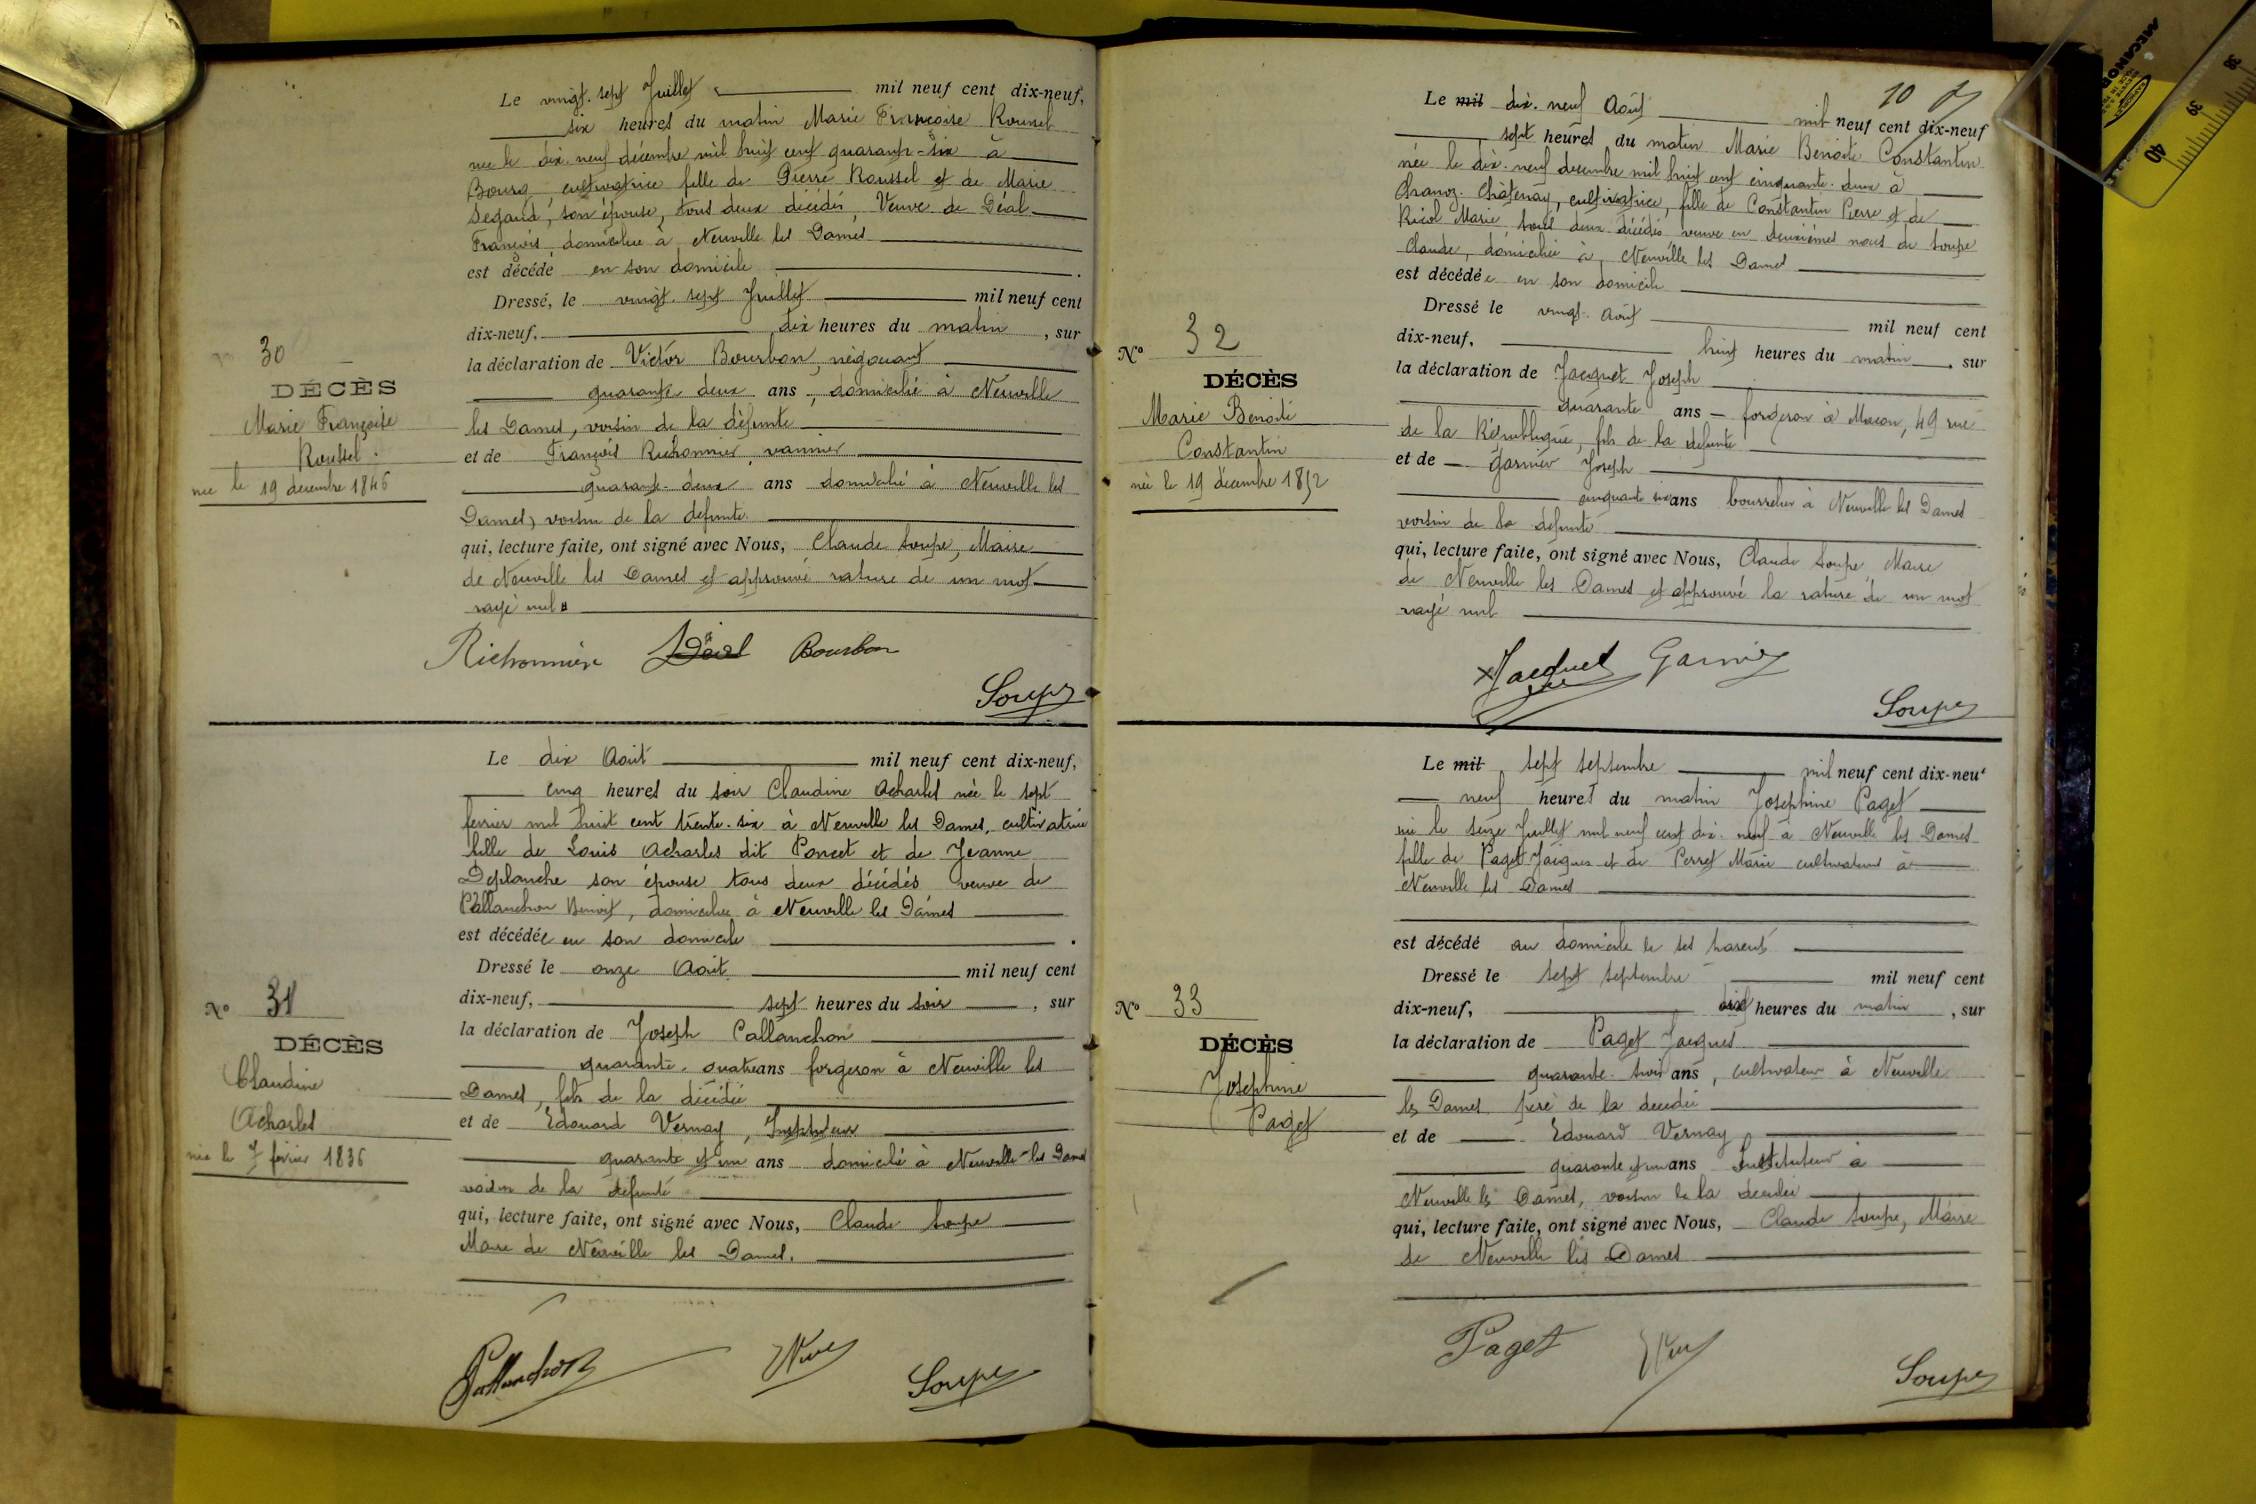 Le vingt-sept Juillet mil neuf cent dix-neuf,
six heures du matin Marie Françoise Roussel
née le dix-neuf décembre mil huit cent quarante-six à
Bourg, cultivatrice fille de Pierre Roussel et de Marie
Segaud, son épouse, tous deux décédés, Veuve de Déal
François domiciliée à Neuville les Dames
est décédé en son domicile
Dressé, le vingt-sept Juillet mil neuf cent
dix-neuf, dix heures du matin, sur
la déclaration de Victor Bourbon, négociant
quarante deux ans, domicilié à Neuville
les Dames, voisin de la défunte
et de François Richonnier, vannier
quarante-deux ans domicilié à Neuville les
Dames, voisin de la défunte
qui, lecture faite, ont signé avec Nous, Claude Soupe, Maire
de Neuville les Dames et approuvé rature de un mot
rayé nul
Richonnier Déal Bourbon
Soupe
30
DÉCÈS
Marie Françoise
Roussel.
née le 19 décembre 1846
Le dix Août mil neuf cent dix-neuf,
cinq heures du soir Claudine Acharles née le sept
février mil huit cent trente-six à Neuville les Dames, cultivatrice
fille de Louis Acharles dit Poncet et de Jeanne
Deplanche son épouse tous deux décédés veuve de
Pallanchon Benoit, domiciliée à Neuville les Dames
est décédée en son domicile.
Dressé le onze Août mil neuf cent
dix-neuf, sept heures du soir, sur
la déclaration de Joseph Pallanchon
quarante-quatre ans forgeron à Neuville les
Dames, fils de la décédée
et de Edouard Vernay, Instituteur
quarante et un ans domicilié à Neuville-les Dames
voisin de la défunte
qui, lecture faite, ont signé avec Nous, Claude Soupe
Maire de Neuville les Dames.
Pallanchon
Soupe
No 31
DÉCÈS
Claudine
Acharles
née le 7 février 1836
10
Le mil dix-neuf Août mil neuf cent dix-neuf
sept heures du matin Marie Benoite Constantin
née le dix-neuf decembre mil huit cent cinquante-deux à
Chanoz-Châtenay, cultivatrice, fille de Constantin Pierre et de
Ricol Marie tous deux décédés veuve en deuxièmes noces de Soupe
Claude, domiciliée à Neuville les Dames
est décédée en son domicile
Dressé le vingt-Août mil neuf cent
dix-neuf, huit heures du matin, sur
la déclaration de Jacquet Joseph
quarante ans - forgeron à Macon, 49 rue
de la République, fils de la défunte
et de - Garnier Joseph
cinquante six ans bourrelier à Neuville les Dames
voisin de la défunte
qui, lecture faite, ont signé avec Nous, Claude Soupe Maire
de Neuville les Dames et approuvé la rature de un mot
rayé nul
Jacquet Garnier
Soupe
No 32
DÉCÈS
Marie Benoite
Constantin
née le 19 décembre 1852
Le mil sept septembre mil neuf cent dix-neuf
neuf heures du matin Josephine Paget
née le seize Juillet mil neuf cent dix-neuf à Neuville les Dames
fille de Paget Jacques et de Perret Marie cultivateurs à
Neuville les Dames
est décédé au domicile de ses parents
Dressé le sept septembre mil neuf cent
dix-neuf, dix heures du matin, sur
la déclaration de Paget Jacques
quarante-trois ans, cultivateur à Neuville
les Dames père de la décédée
et de Edouard Vernay
quarante et un ans Instituteur à
Neuville les Dames, voisin de la décédée
qui, lecture faite, ont signé avec Nous, Claude Soupe, Maire
de Neuville les Dames
Paget
Soupe
No 33
DÉCÈS
Josephine
Paget
38
39
40